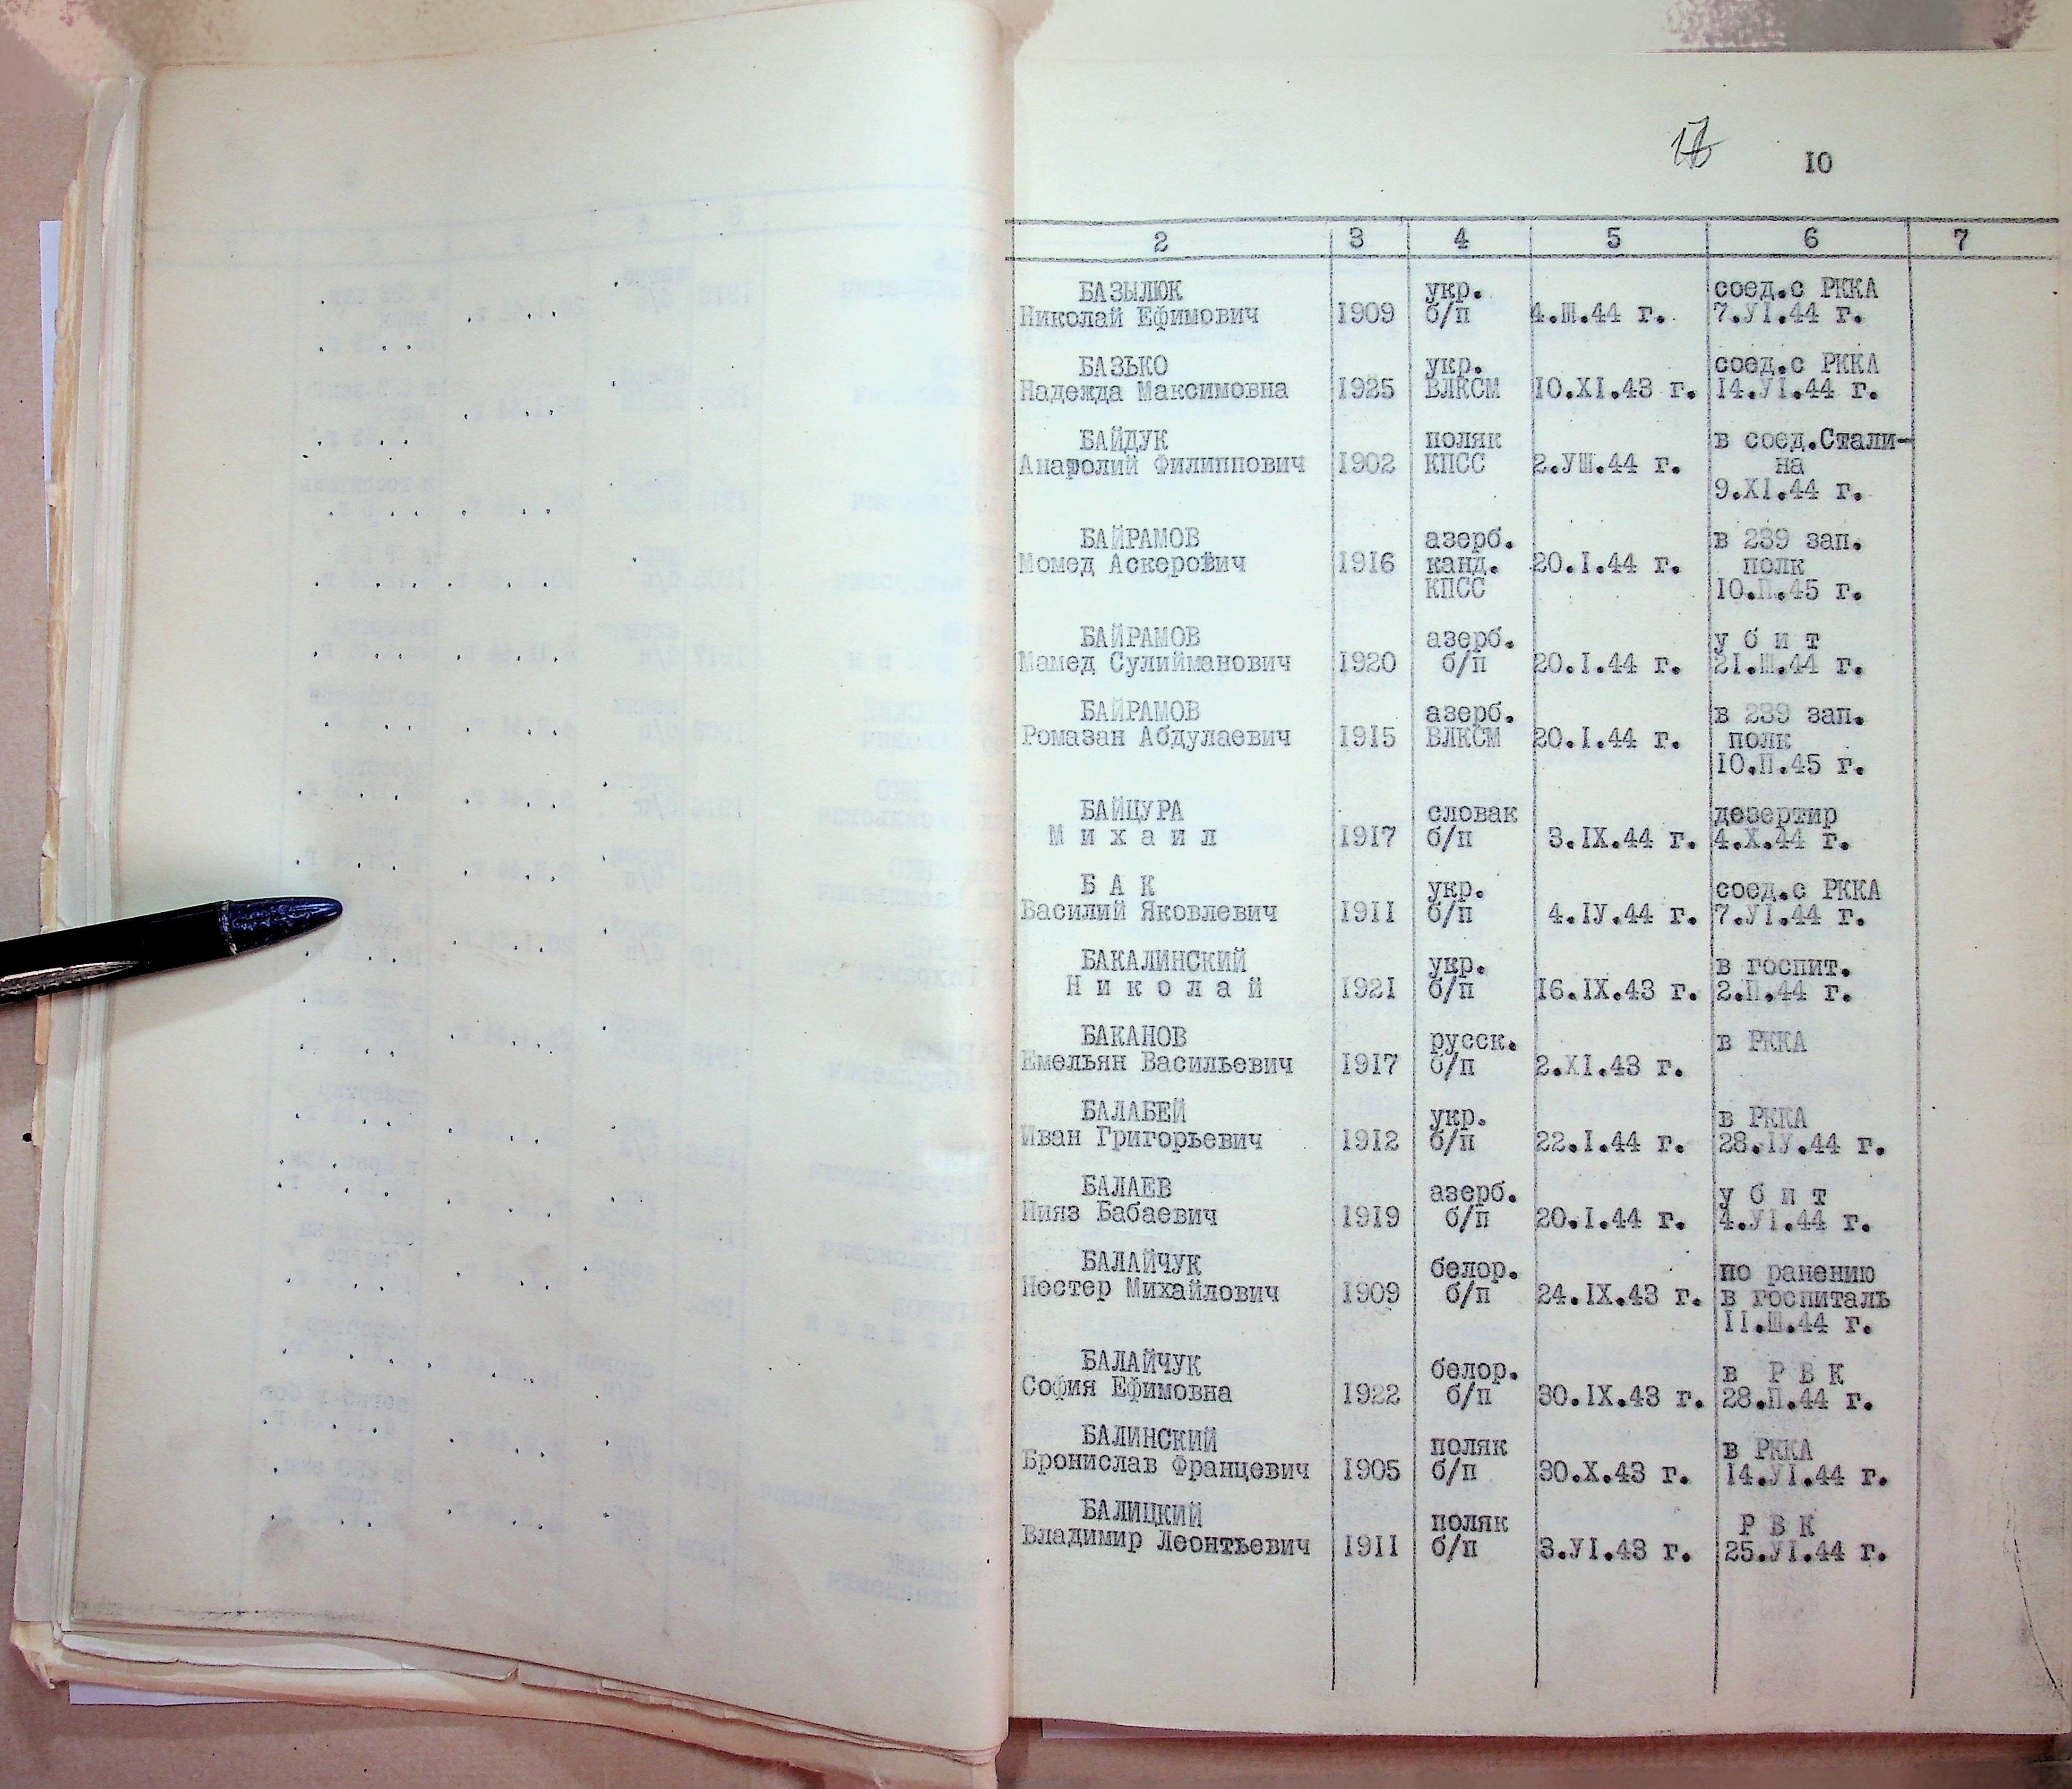 10
2 3 4 5 6 7
БАЗЫЛЮК укр. соед.с РККА
Николай Ефимович 1909 б/п 4.Ш.44 г. 7.УI.44 г.
БАЗЬКО укр. соед.с РККА
Надежда Максимовна 1925 ВЛКСМ 10.XI.43 г. 14.УI.44 г.
БАЙДУК поляк в соед.Стали-
Анатолий Филиппович 1902 КПСС 2.УШ.44 г. на
9.XI.44 г.
БАЙРАМОВ азерб. в 239 зап.
Момед Аскерович 1916 канд. 20.I.44 г. полк
КПСС 10.П.45 г.
БАЙРАМОВ азерб. у б и т
Мамед Сулийманович 1920 б/п 20.I.44 г. 21.Ш.44 г.
БАЙРАМОВ азерб. в 239 зап.
Ромазан Абдулаевич 1915 ВЛКСМ 20.I.44 г. полк
10.П.45 г.
БАЙЦУРА словак дезертир
М и х а и л 1917 б/п 3.IX.44 г. 4.X.44 г.
Б А К укр. соед.с РККА
Василий Яковлевич 1911 б/п 4.IУ.44 г. 7.УI.44 г.
БАКАЛИНСКИЙ укр. в госпит.
Н и к о л а й 1921 б/п 16.IX.43 г. 2.П.44 г.
БАКАНОВ русск. в РККА
Емельян Васильевич 1917 б/п 2.XI.43 г.
БАЛАБЕЙ укр. в РККА
Иван Григорьевич 1912 б/п 22.I.44 г. 28.IУ.44 г.
БАЛАЕВ азерб. у б и т
Нияз Бабаевич 1919 б/п 20.I.44 г. 4.УI.44 г.
БАЛАЙЧУК белор. по ранению
Нестер Михайлович 1909 б/п 24.IX.43 г. в госпиталь
11.Ш.44 г.
БАЛАЙЧУК белор. в Р В К
София Ефимовна 1922 б/п 30.IX.43 г. 28.П.44 г.
БАЛИНСКИЙ поляк в РККА
Бронислав Францевич 1905 б/п 30.X.43 г. 14.УI.44 г.
БАЛИЦКИЙ поляк Р В К
Владимир Леонтьевич 1911 б/п 3.УI.43 г. 25.УI.44 г.